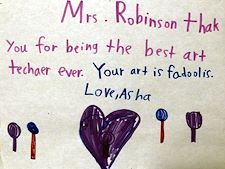 Mrs. Robinson thak
You for being the best art
techaer ever. Your art is fadoolis.
Love, Asha